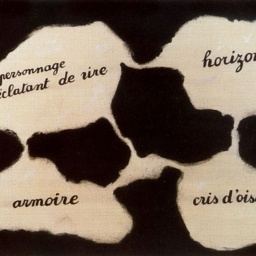 personnage
éclatant de rire
horizon
armoire
cris d'ois